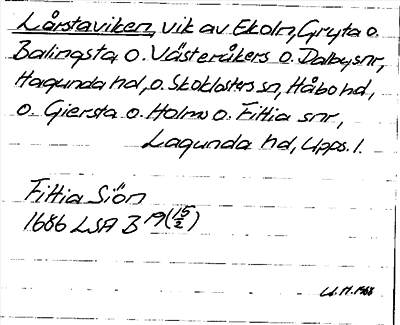 Lårstaviken, vik av Ekoln, Gryta o.
Balingsta o. Västeråkers o. Dalby snr,
Hagunda hd, o. Skoklosters sn, Håbo hd,
o. Giersta o. Holms o. Fittia snr,
Lagunda hd, Upps. l.
Fittia Siön
1686 LSA B 19 (15/2)
1988